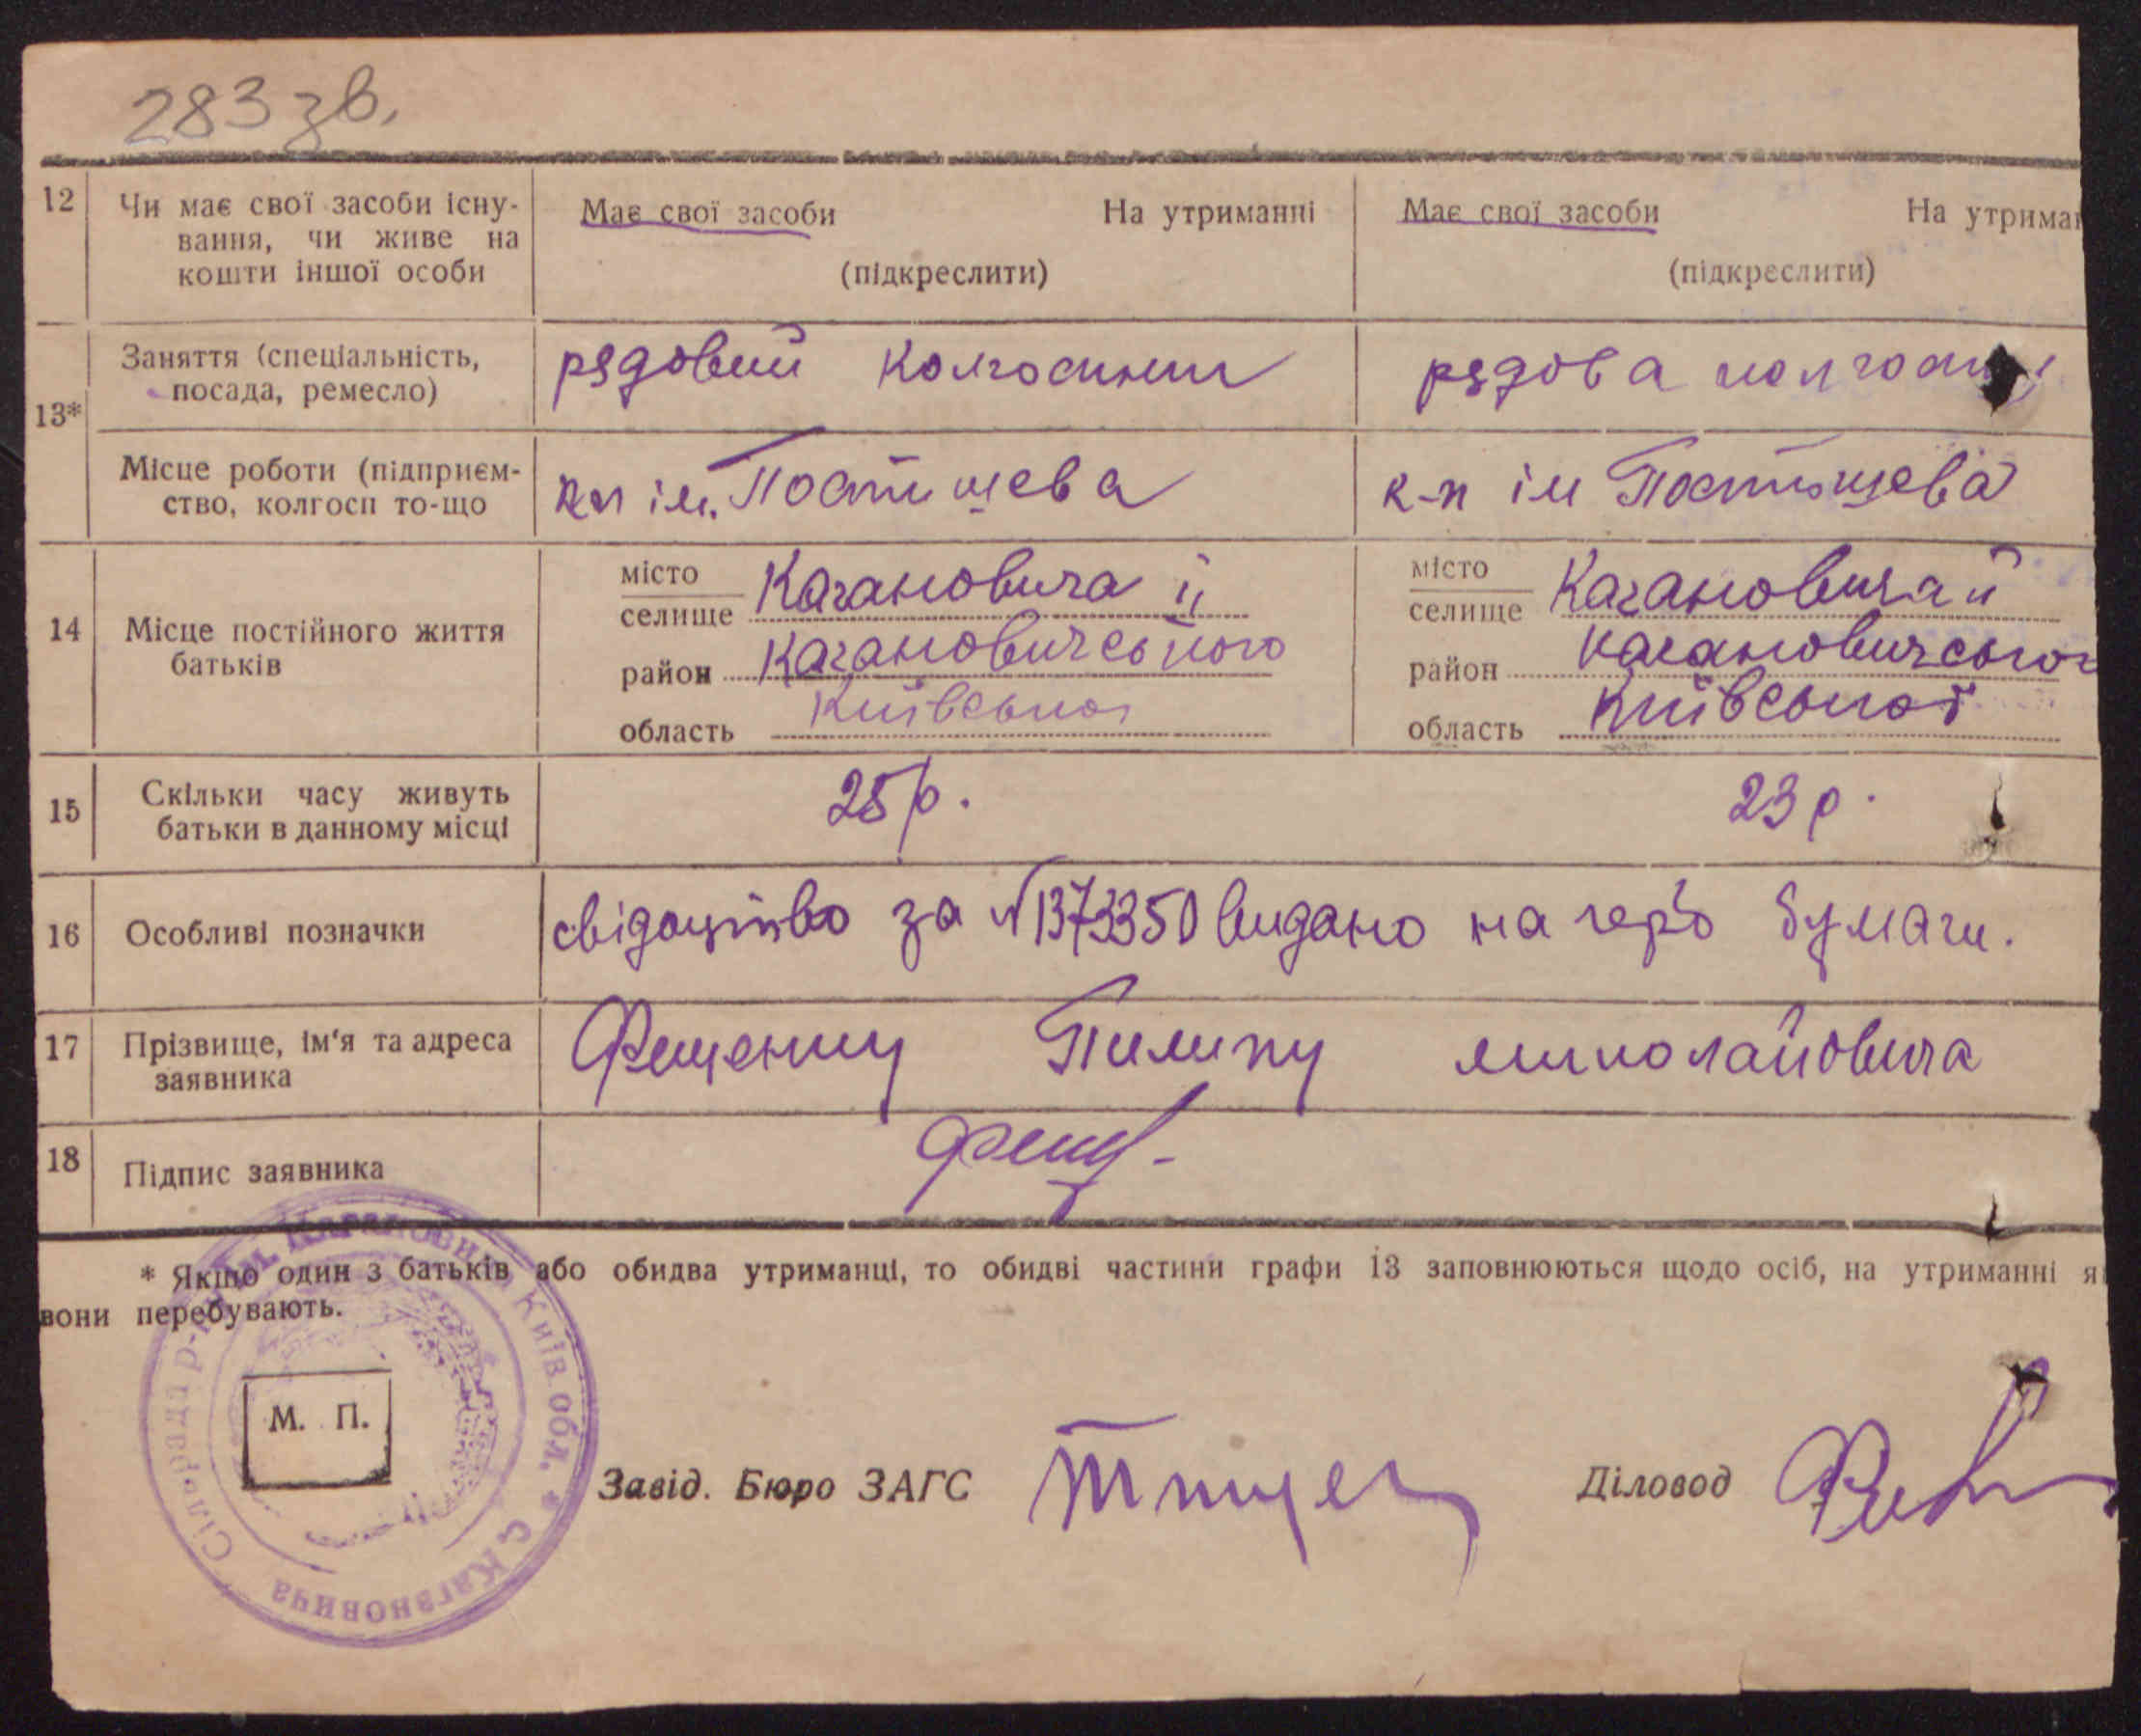 283 зв.
12 Чи має свої засоби існу- Має свої засоби На утриманні Має свої засоби На утриман
вання, чи живе на
кошти іншої особи (підкреслити) (підкреслити)
Заняття (спеціальність, рядовий колгоспник рядова колгосп
посада, ремесло)
13*
Місце роботи (підприєм- к-п ім. Постишева к-п ім Постишева
ство, колгосп то-що
місто Кагановича ІІ місто Кагановича ІІ
селище селище
14 Місце постійного життя район Кагановичського район Кагановичського
батьків
область Київської область Київської
15 Скільки часу живуть 25 р. 23 р.
батьки в данному місці
16 Особливі позначки свідоцтво за № 1373350 видано на герб бумаги.
17 Прізвище, ім'я та адреса Фещенку Пилипу миколайовича
заявника
18 Підпис заявника Фещ
* Якщо один з батьків або обидва утриманці, то обидві частини графи 13 заповнюються щодо осіб, на утриманні я
вони перебувають.
Сільрада р-ну ім. Кагановича Київ обл. * С. Кагановича
М. П.
Завід. Бюро ЗАГС Діловод